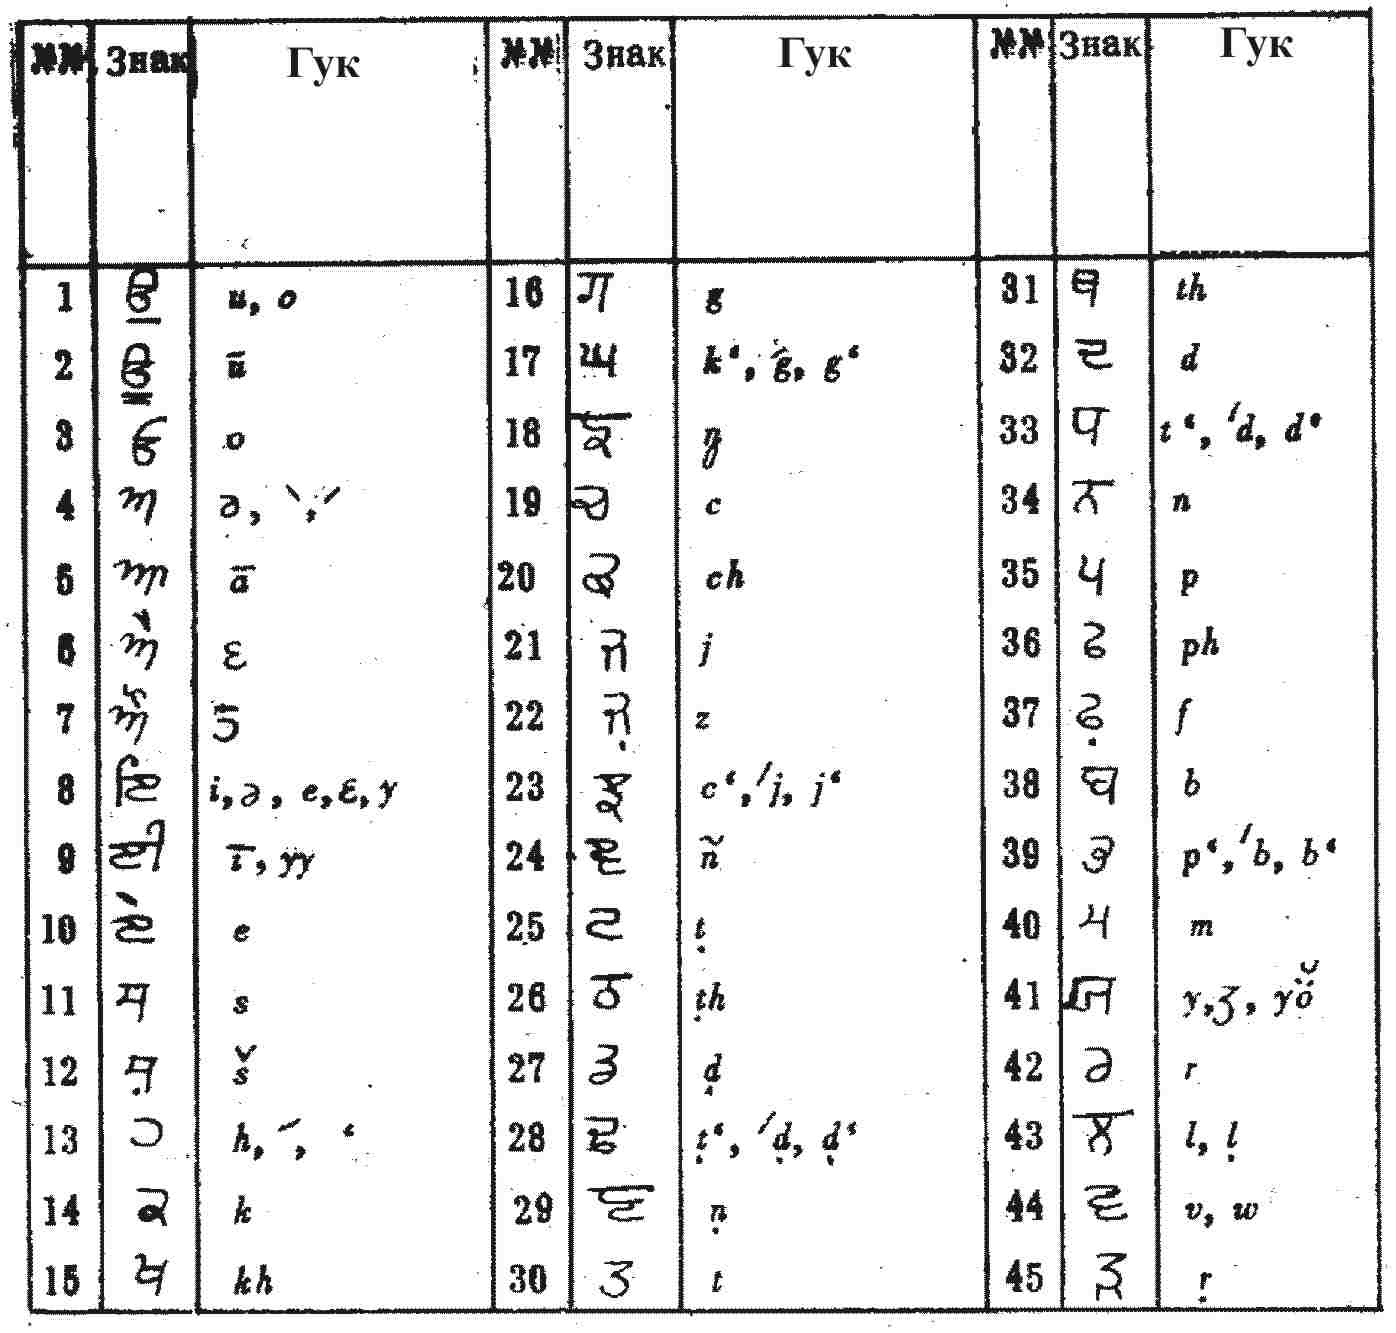 №№ Знак Гук №№ Знак Гук №№ Знак Гук
1 ੳੁ u, o 16 ਗ g 31 ਥ th
2 ੳੂ ū 17 ਘ k‘, ´g, g‘ 32 ਦ d
3 ਓ o 18 ਙ ŋ 33 ਧ t‘, ´d, d‘
4 ਅ ə, `, ´ 19 ਚ c 34 ਨ n
5 ਆ ā 20 ਛ ch 35 ਪ p
6 ਐ ε 21 ਜ j 36 ਫ ph
7 ਔ ɔ̄ 22 ਜ਼ z 37 ਫ਼ f
8 ਇ i, ə, e, ε, y 23 ਝ c‘, ´j, j‘ 38 ਬ b
9 ਈ ī, yy 24 ਞ ñ 39 ਭ p‘, ´b, b‘
10 ਏ e 25 ਟ ṭ 40 ਮ m
11 ਸ s 26 ਠ ṭh 41 ਯ y, ʒ, yŏ̈
12 ਸ਼ š 27 ਡ ḍ 42 ਰ r
13 ਹ h, ´, ‘ 28 ਢ ṭ‘, ´ḍ, ḍ‘ 43 ਲ l, ḷ
14 ਕ k 29 ਣ ṇ 44 ਵ v, w
15 ਖ kh 30 ਤ t 45 ੜ ṛ